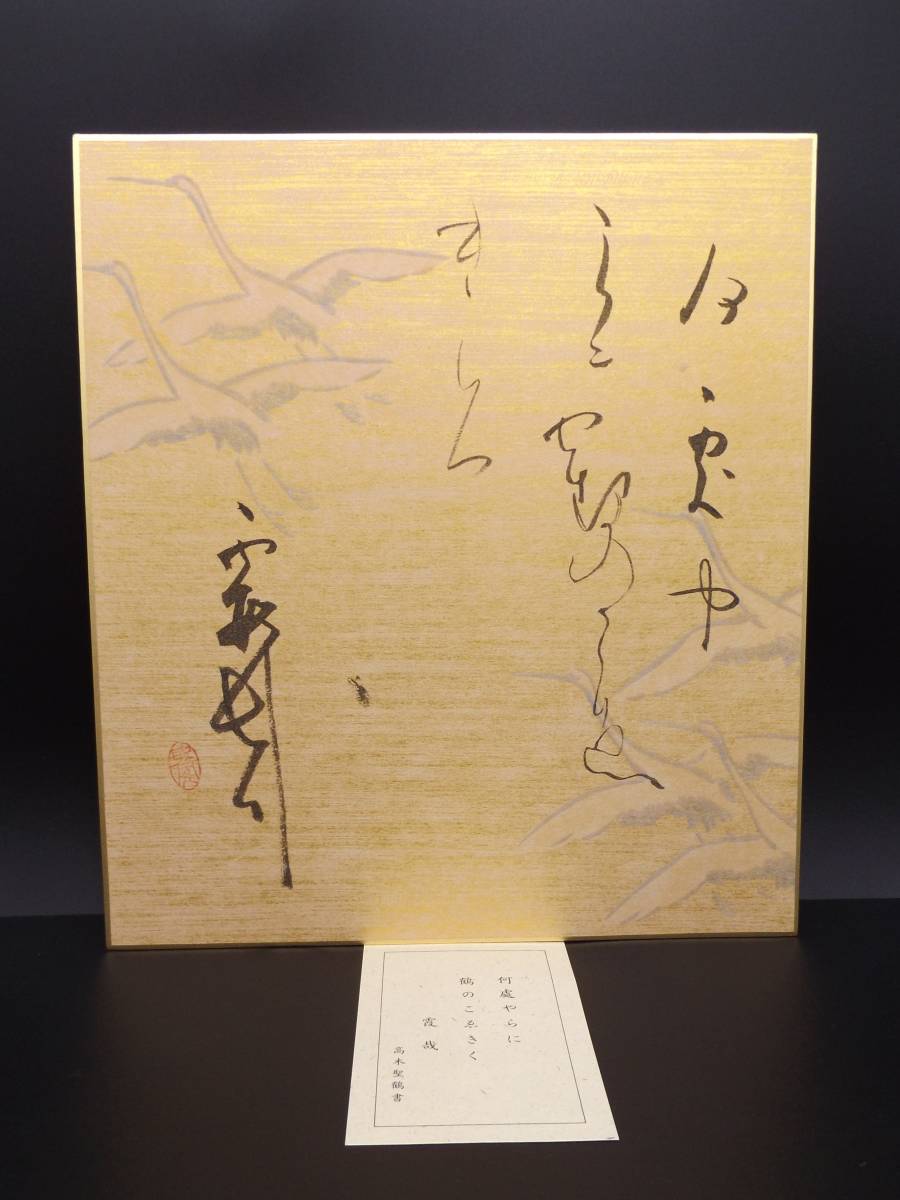 何處や
らに鶴のこゑ
きく
霞哉
何處やらに
鶴のこゑきく
霞哉
高木聖鶴書